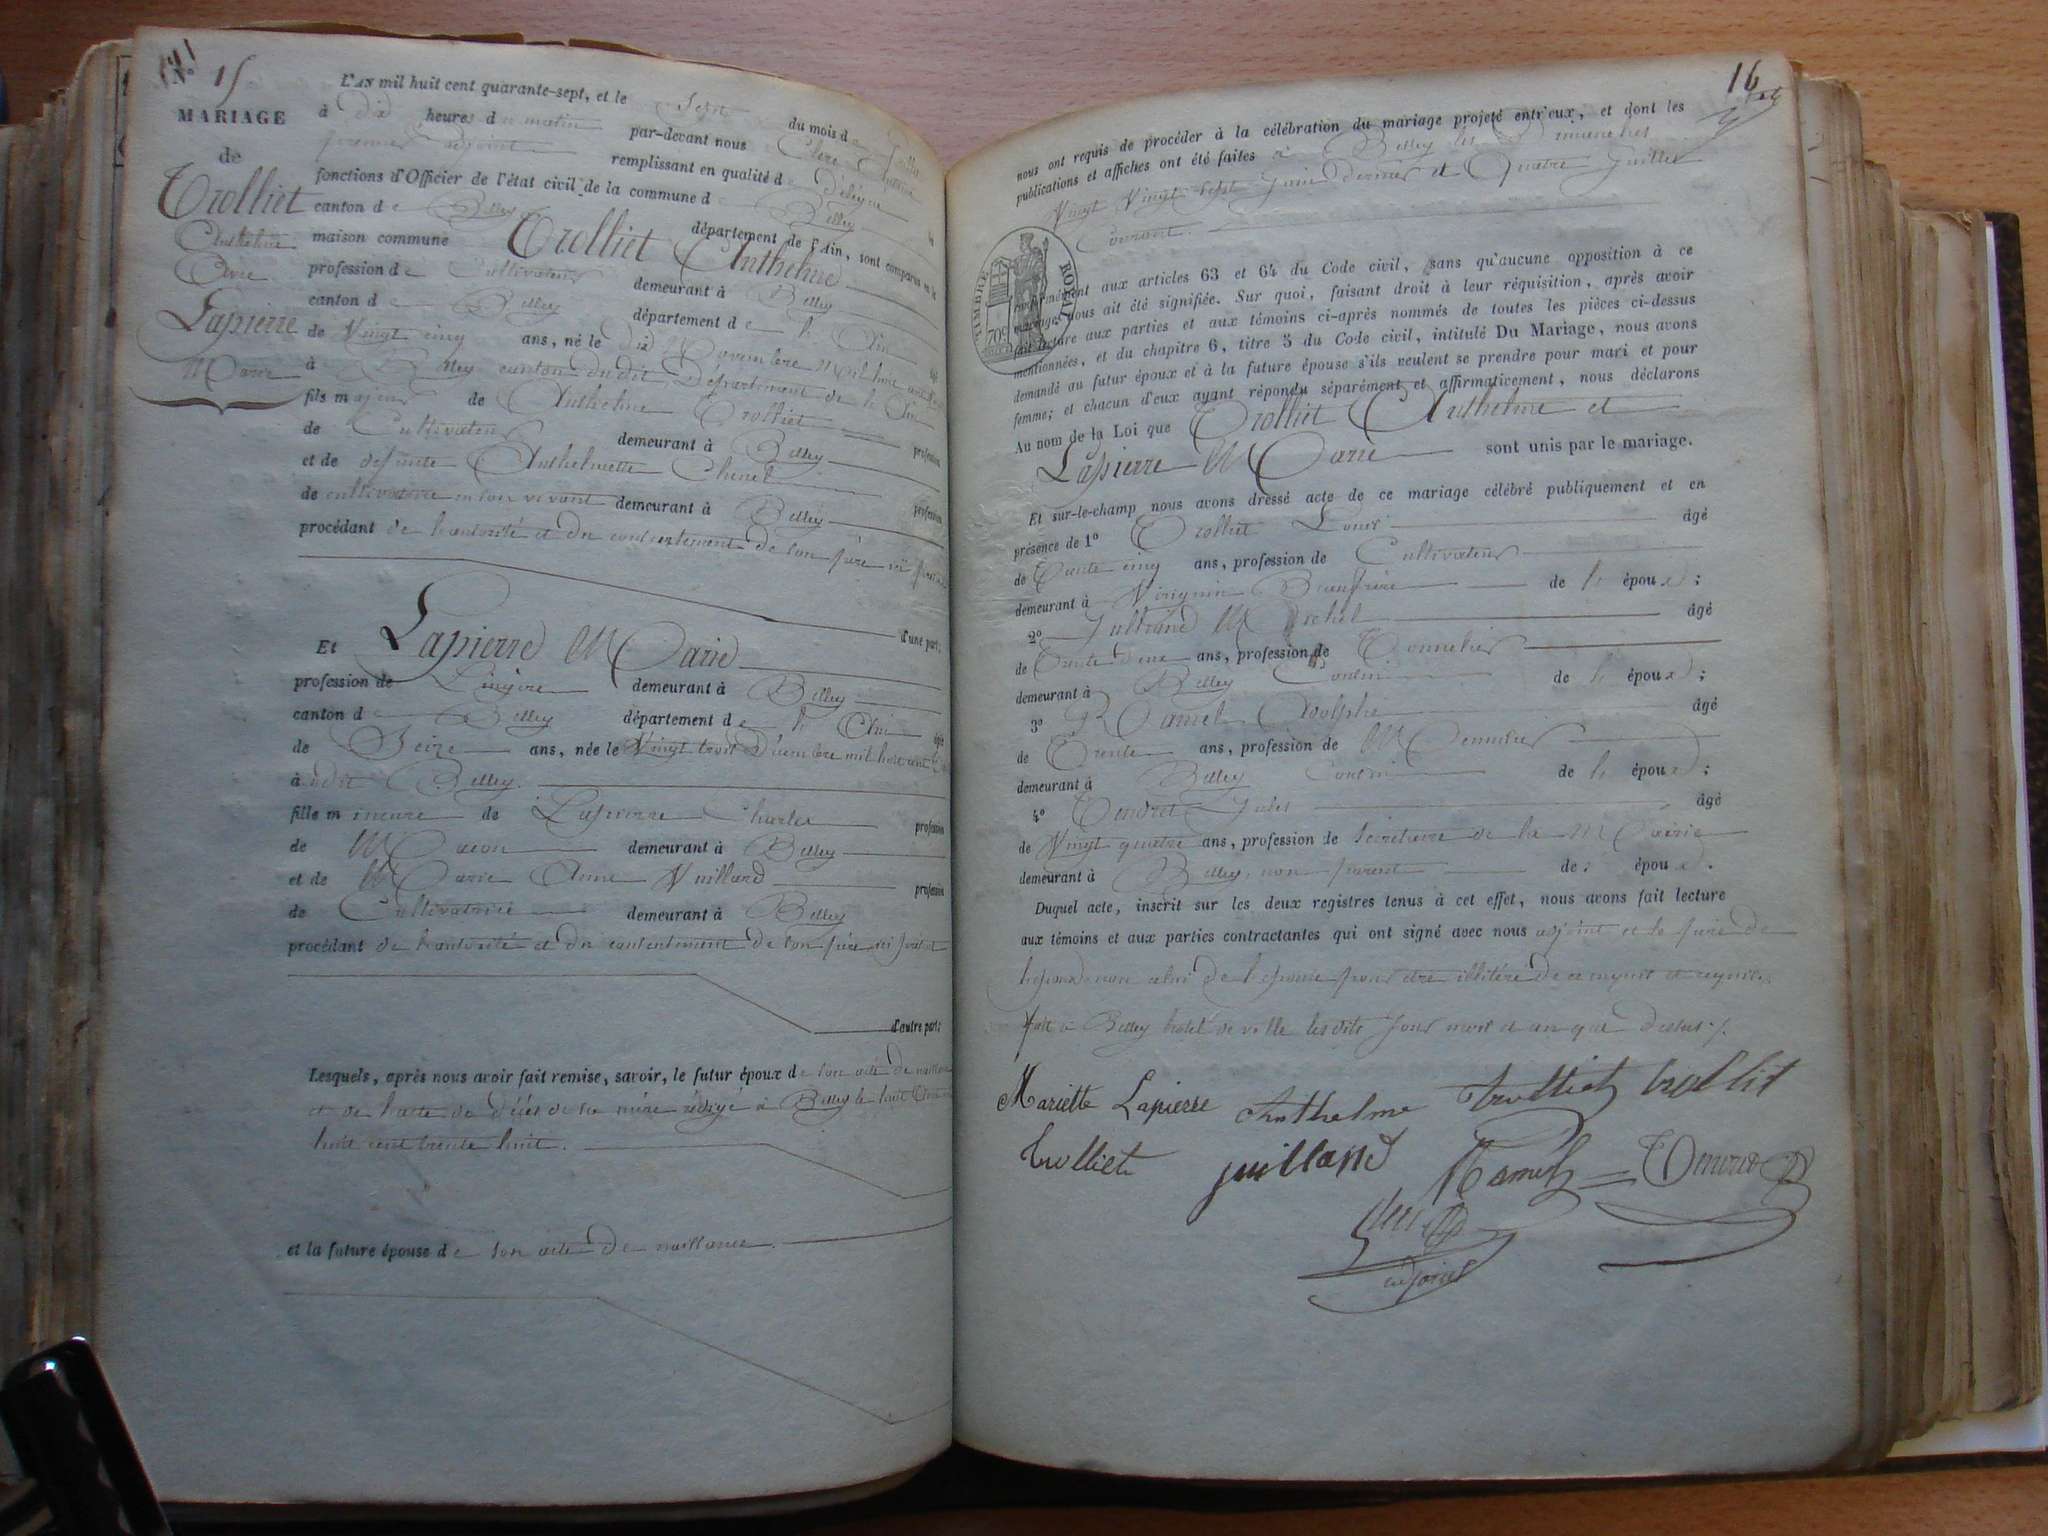 N° 15
MARIAGE
de
Trolliet
Anthelme
Avec
Lapierre
Marie
L'AN mil huit cent quarante-sept, et le Sept du mois de Juillet
à dix heures du matin par-devant nous Clerc
premier adjoint remplissant en qualité de Délégué
fonctions d'Officier de l'état civil de la commune de Belley
canton de Belley département de l'Ain, sont comparus en la
maison commune Trolliet Anthelme
profession de Cultivateur demeurant à Belley
canton de Belley département de l'Ain
de Vingt cinq ans, né le dix Novembre mil huit cent
à Belley canton dudit, Département de l'Ain
fils majeur de Anthelme Trolliet profession
de Cultivateur demeurant à Belley
et de défunte Anthelmette Chenel profession
de cultivatrice en son vivant demeurant à Belley
procédant de l'autorité et du consentement de son père ici présent
d'une part;
Et Lapierre Marie
profession de Lingère demeurant à Belley
canton de Belley département de l'Ain âgée
de Seize ans, née le Vingt trois Décembre mil huit cent
à dit Belley.
fille mineure de Lapierre Charles profession
de Maçon demeurant à Belley
et de Marie Anne Vuillard profession
de Cultivatrice demeurant à Belley
procédant de l'autorité et du consentement de son père ici présent
d'autre part;
Lesquels, après nous avoir fait remise, savoir, le futur époux de son acte de naissance
et de l'acte de décès de sa mère rédigé à Belley le huit
huit cent trente huit.
et la future épouse de son acte de naissance.
16
nous ont requis de procéder à la célébration du mariage projeté entr'eux, et dont les
publications et affiches ont été faites à Belley les Dimanches
Vingt Vingt sept Juin dernier et Quatre Juillet
Courant.
TIMBRE ROYAL
70c
conformément aux articles 63 et 64 du Code civil, sans qu'aucune opposition à ce
mariage nous ait été signifiée. Sur quoi, faisant droit à leur réquisition, après avoir
fait lecture aux parties et aux témoins ci-après nommés de toutes les pièces ci-dessus
mentionnées, et du chapitre 6, titre 5 du Code civil, intitulé Du Mariage, nous avons
demandé au futur époux et à la future épouse s'ils veulent se prendre pour mari et pour
femme; et chacun d'eux ayant répondu séparément et affirmativement, nous déclarons
Au nom de la Loi que Trolliet Anthelme et
Lapierre Marie sont unis par le mariage.
Et sur-le-champ nous avons dressé acte de ce mariage célébré publiquement et en
présence de 1° Trolliet Louis âgé
de Trente cinq ans, profession de Cultivateur
demeurant à Virignin Beaufrère de l'époux;
2° Michel âgé
de Trente deux ans, profession de Tonnelier
demeurant à Belley Cousin de l'époux;
3° Ramel Adolphe âgé
de Trente ans, profession de Menuisier
demeurant à Belley Cousin de l'époux;
4° Tendret Jules âgé
de Vingt quatre ans, profession de Secrétaire de la Mairie
demeurant à Belley, non parent de s époux.
Duquel acte, inscrit sur les deux registres tenus à cet effet, nous avons fait lecture
aux témoins et aux parties contractantes qui ont signé avec nous adjoint et le père de
l'époux non celui de l'épouse pour être illitéré de ce enquis et requis.
fait à Belley hôtel de ville les dits jour mois et an que dessus.
Mariette Lapierre Anthelme Trolliet trolliet
trolliet Ramel Tendret
Clerc
adjoint